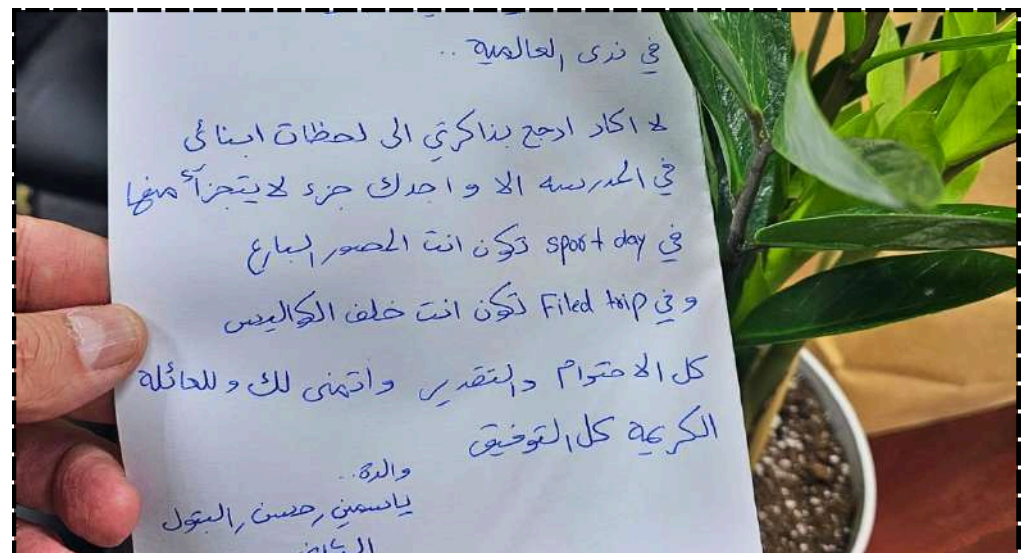 في ذرى العالمية ..
لا اكاد ارجع بذاكرتي الى لحظات ابنائي
في المدرسه الا و اجدك جزء لا يتجزأ منها
في sport day تكون انت المصور البارع
و في Filed trip تكون انت خلف الكواليس
كل الاحترام والتقدير واتمنى لك و للعائلة
الكريمة كل التوفيق
والدة..
ياسمين, حسن, البتول